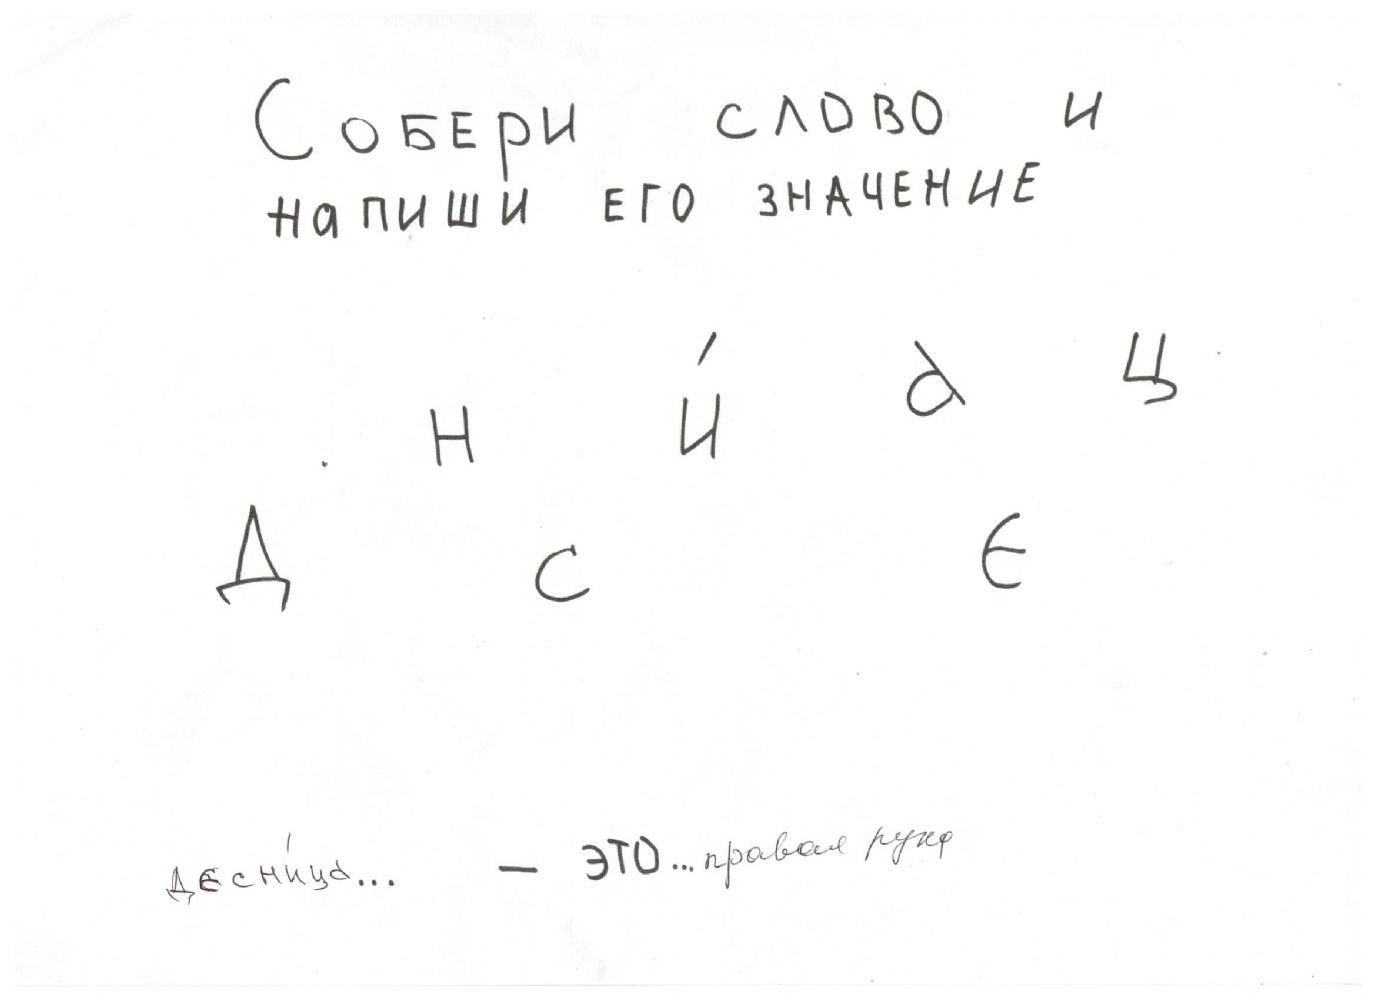 Собери слово и
напиши его значение
н и́ а ц
Д с е
десни́ца... — это... правая рука